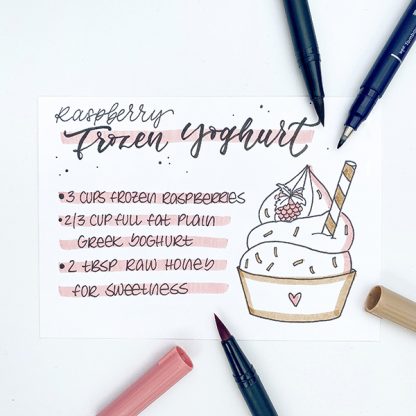 Raspberry
Frozen Yoghurt
• 3 CUPS FROZEN RASPBERRIES
• 2/3 CUP FULL FAT PLAIN
GREEK YOGHURT
• 2 TBSP RAW HONEY
FOR SWEETNESS